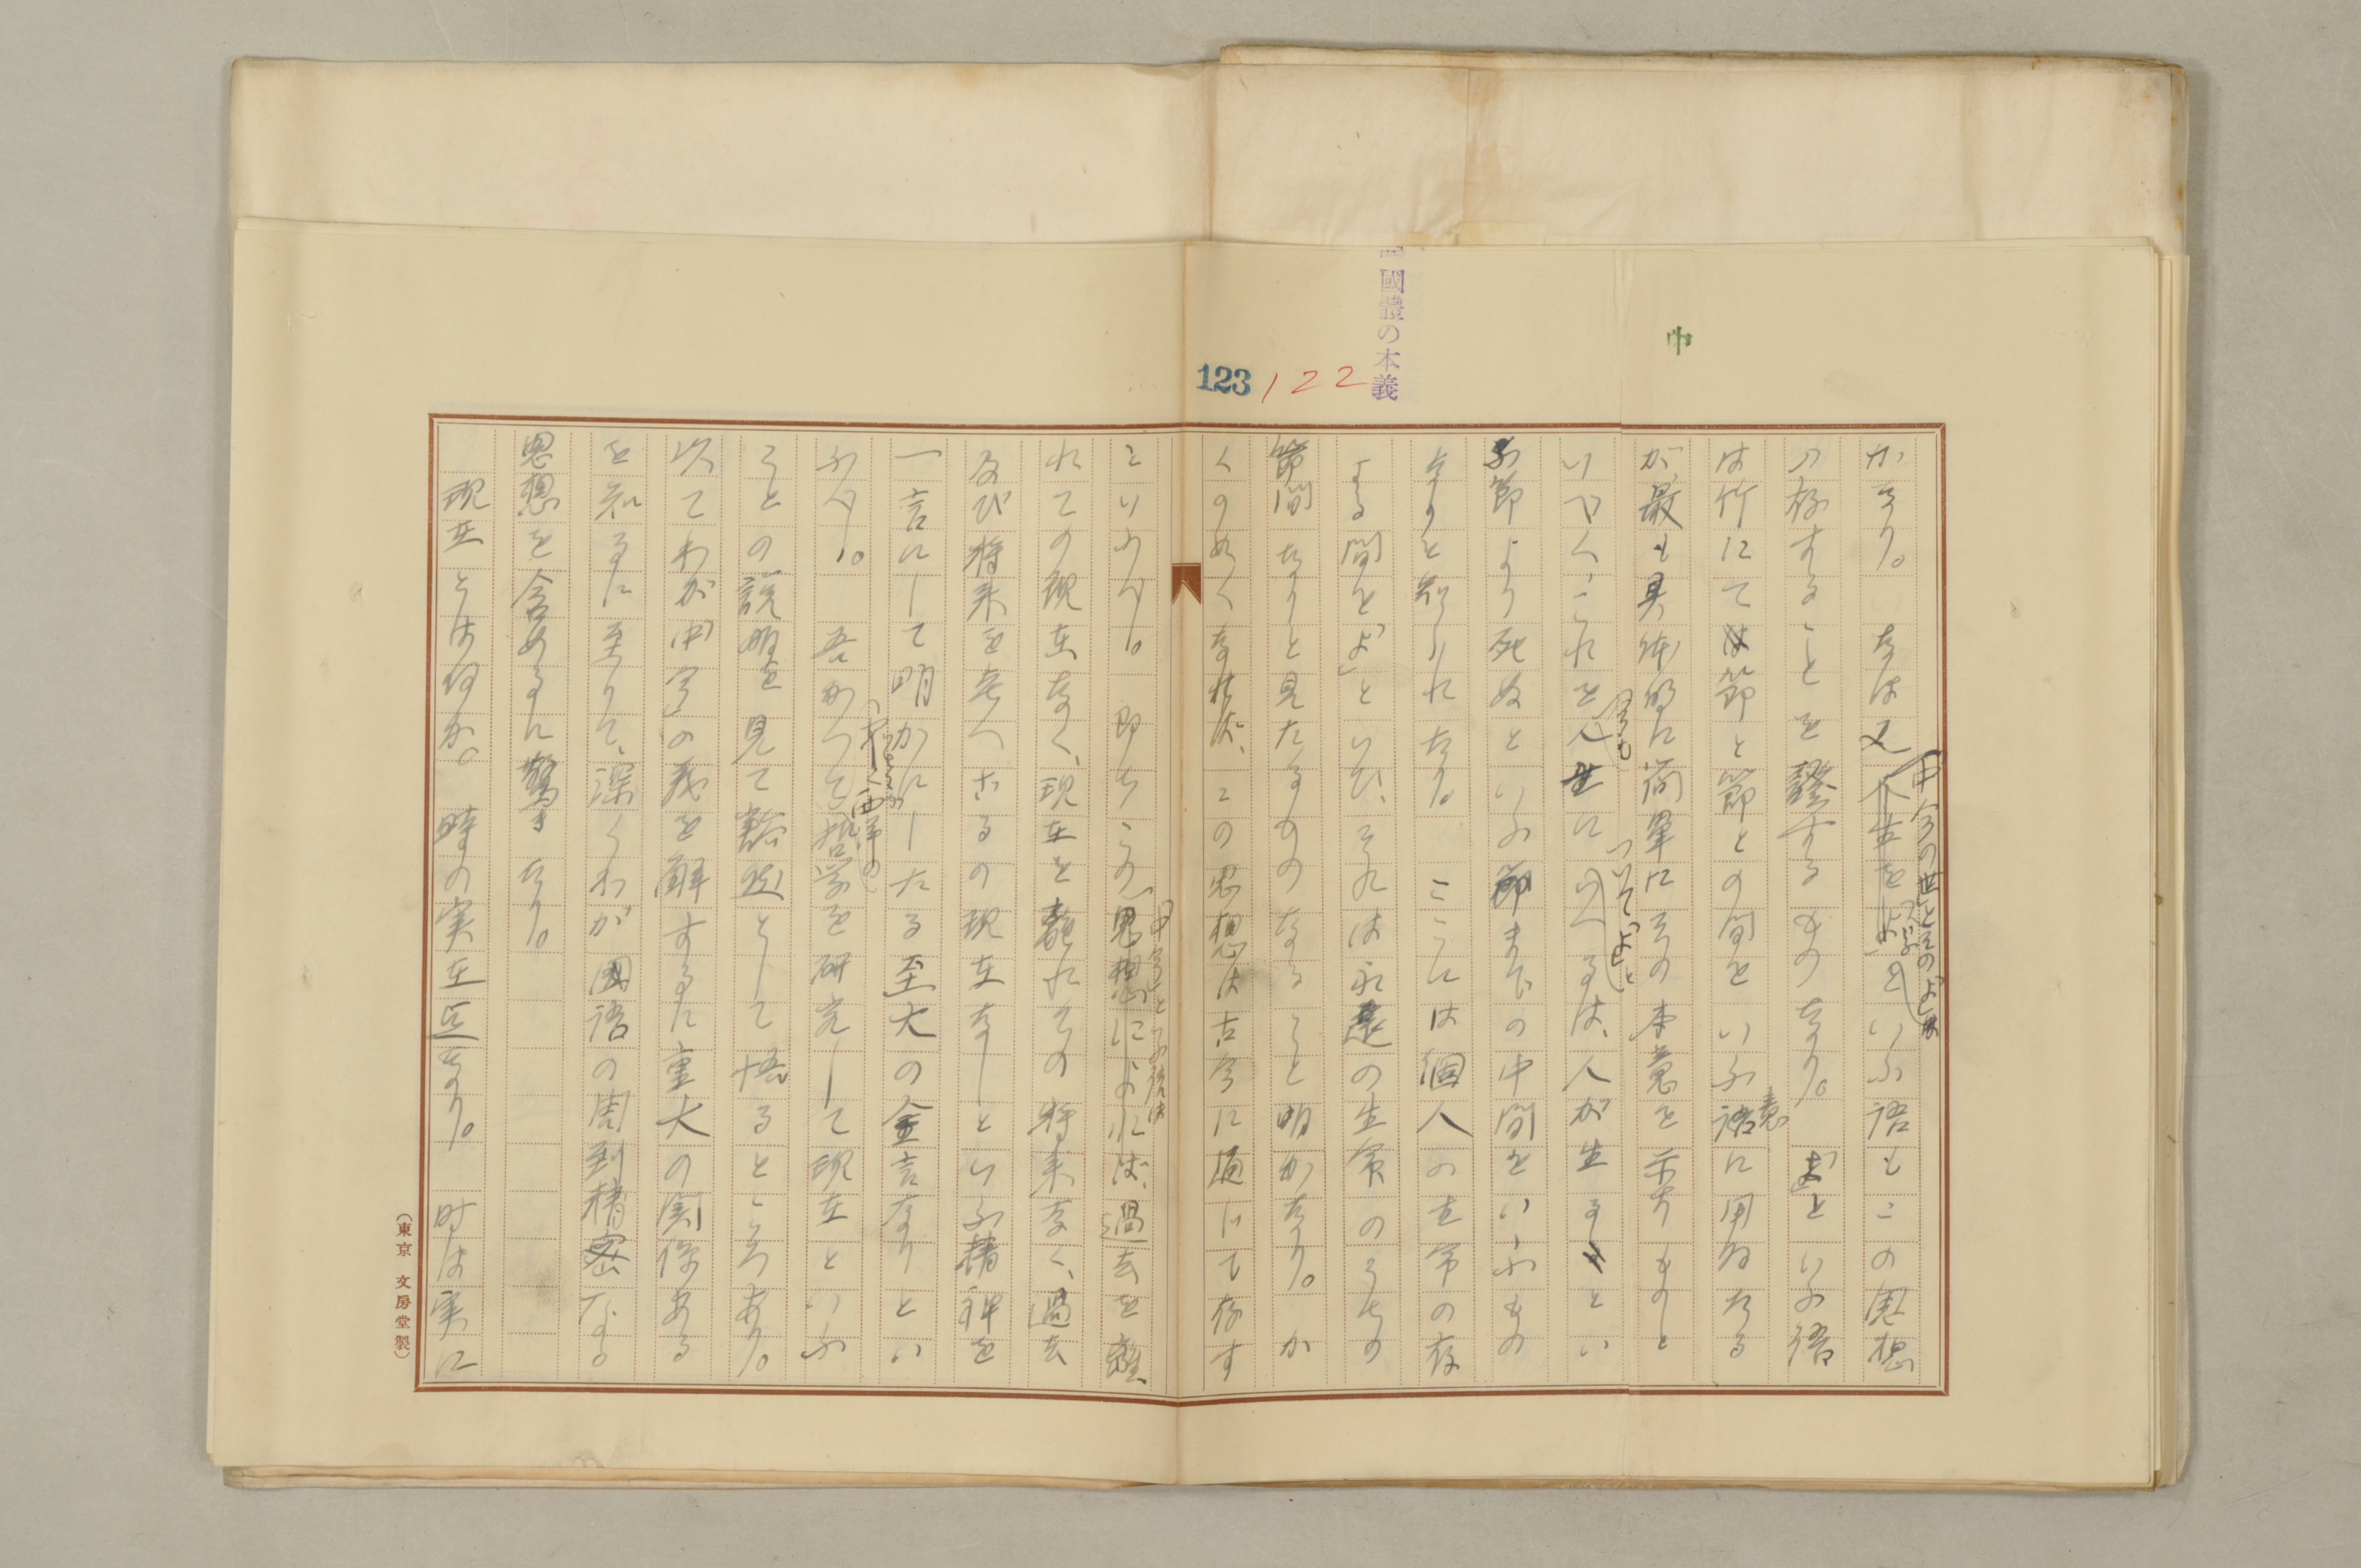 國體の本義
中
123
122
かなり。なほ又人生をよといふ語もこの思想
「中今の世」とその「よ」が
の存することを證するものなり。「よ」といふ語
は竹にては節と節との間をいふ語に用ゐたる
意
が、最も具体的に簡単にその本意を示すものと
いふべく、これを人世にいへるは、人が生るといい
ふ節より死ぬといふ節までの中間をいふもの
なりと知られたり。ここには個人の生命の存
する間を「よ」といひ、それは永遠の生命のうちの
節間なりと見たるものなること明かなり。か
くの如くなれば、この思想は古今に通じて存す
といふべし。即ちこの思想によれば、過去を離
「中今」といふ語は
れての現在なく、現在を離れての将来なく、過去
及び将来を考へざるの現在なしといふ精神を
一言にして明かにしたる至大の金言なりとい
ふべし。吾かつて哲学を研究して現在といふ
西洋の
ことの説明を見て豁然として悟るところあり。
以てわが「中今」の義を解するに重大の関係ある
を知るに至りて、深くわが國語の周到精密なる
思想を含めるに驚きたり。
現在とは何か。時の実在上なり。時は実に
(東京 文房堂製)